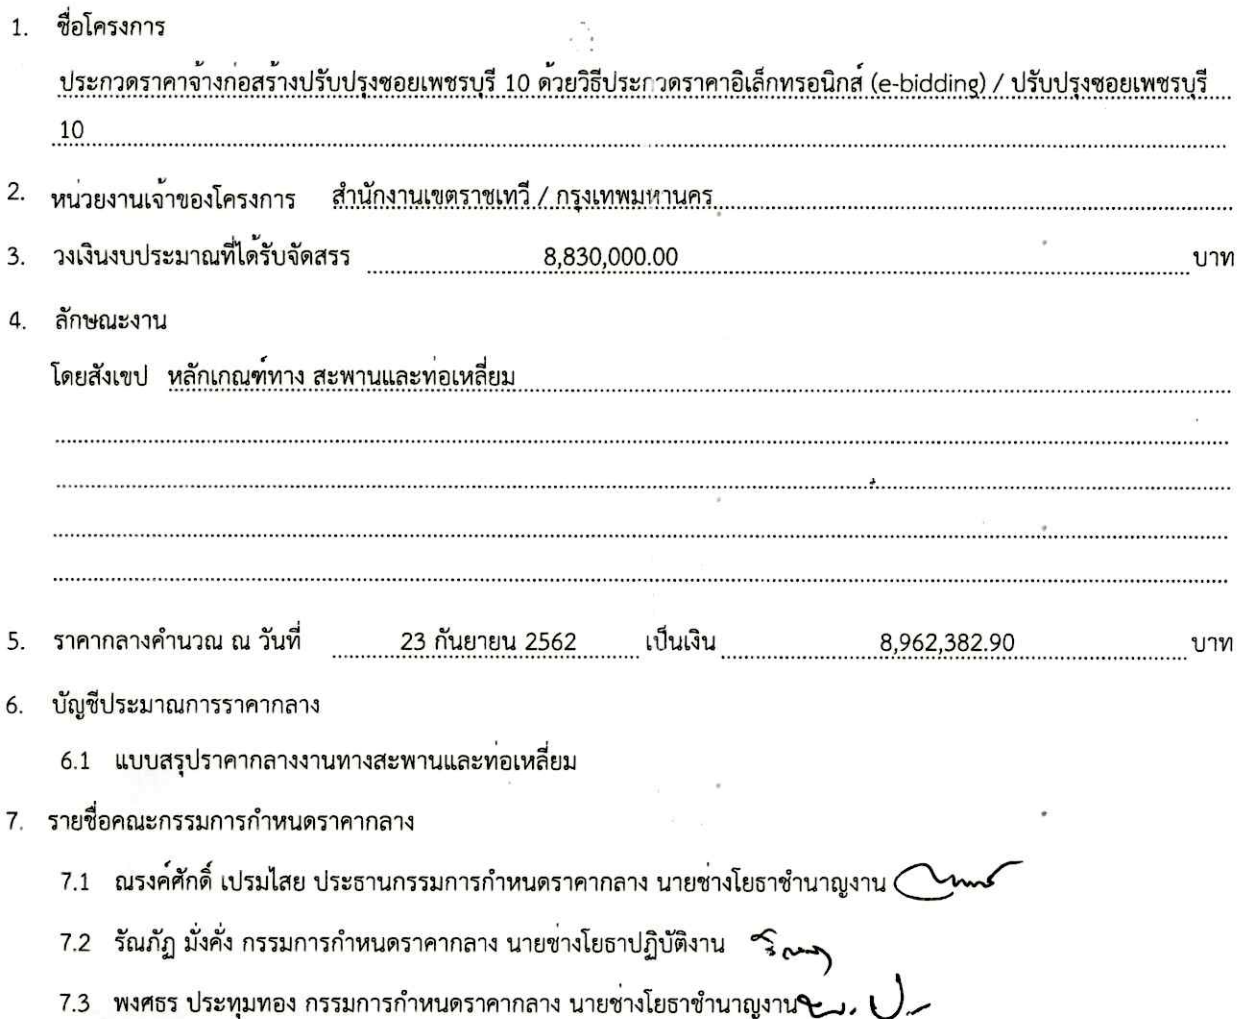 1. ชื่อโครงการ
ประกวดราคาจ้างก่อสร้างปรับปรุงซอยเพชรบุรี 10 ด้วยวิธีประกวดราคาอิเล็กทรอนิกส์ (e-bidding) / ปรับปรุงซอยเพชรบุรี
10
2. หน่วยงานเจ้าของโครงการ สำนักงานเขตราชเทวี / กรุงเทพมหานคร
3. วงเงินงบประมาณที่ได้รับจัดสรร 8,830,000.00 บาท
4. ลักษณะงาน
โดยสังเขป หลักเกณฑ์ทาง สะพานและท่อเหลี่ยม
5. ราคากลางคำนวณ ณ วันที่ 23 กันยายน 2562 เป็นเงิน 8,962,382.90 บาท
6. บัญชีประมาณการราคากลาง
6.1 แบบสรุปราคากลางงานทางสะพานและท่อเหลี่ยม
7. รายชื่อคณะกรรมการกำหนดราคากลาง
7.1 ณรงค์ศักดิ์ เปรมไสย ประธานกรรมการกำหนดราคากลาง นายช่างโยธาชำนาญงาน
7.2 รัณภัฏ มั่งคั่ง กรรมการกำหนดราคากลาง นายช่างโยธาปฏิบัติงาน
7.3 พงศธร ประทุมทอง กรรมการกำหนดราคากลาง นายช่างโยธาชำนาญงาน